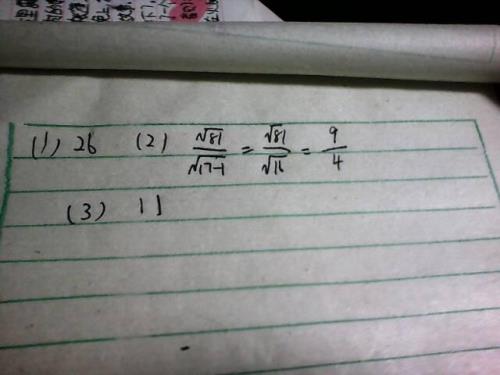 (1) 26 (2) √81/√17-1 = √81/√16 = 9/4
(3) 11